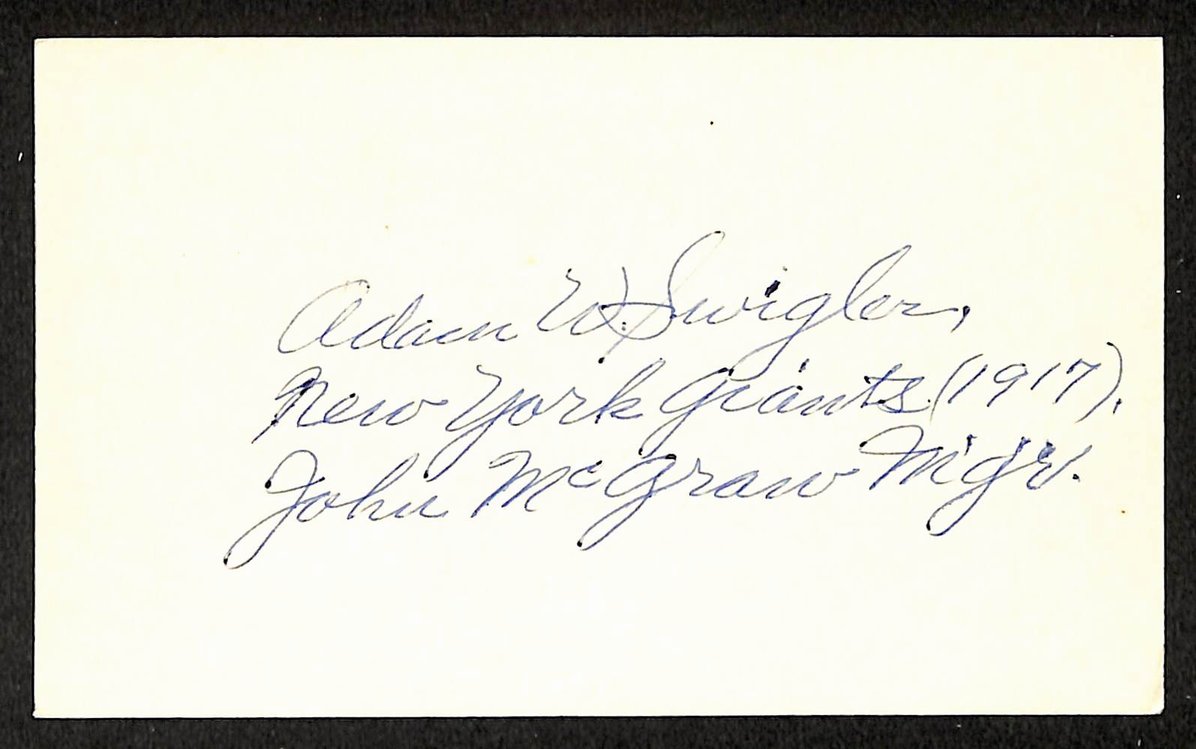 Adam W. Swigler,
New York Giants (1917).
John McGraw Mgr.